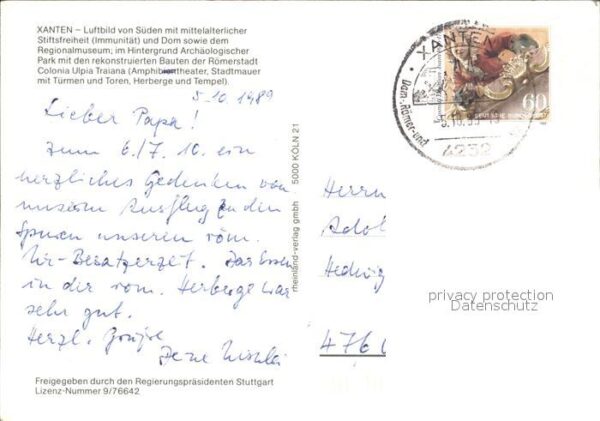 XANTEN – Luftbild von Süden mit mittelalterlicher
Stiftsfreiheit (Immunität) und Dom sowie dem
Regionalmuseum; im Hintergrund Archäologischer
Park mit den rekonstruierten Bauten der Römerstadt
Colonia Ulpia Traiana (Amphitheater, Stadtmauer
mit Türmen und Toren, Herberge und Tempel).
5.10.1989
Lieber Papa!
Zum 6./7. 10. ein
herzliches Gedenken von
unserem Ausflug zu den
Spuren unserer röm.
Ur-Besatzerzeit. Das Essen
in der röm. Herberge war
sehr gut.
Herzl. Grüße
Deine
Freigegeben durch den Regierungspräsidenten Stuttgart
Lizenz-Nummer 9/76642
rheinland-verlag gmbh 5000 KÖLN 21
XANTEN
Dom-, Römer- und
4232
60
DEUTSCHE BUNDESPOST
Herrn
Adol
Hedwig
476
privacy protection
Datenschutz